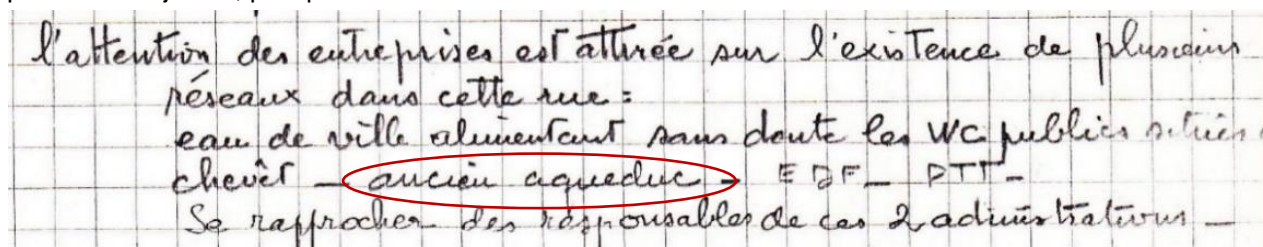 l'attention des entreprises est attirée sur l'existence de plusieurs
réseaux dans cette rue :
eau de ville alimentant sans doute les WC publics situés
chevêt — ancien aqueduc — EDF — PTT —
Se rapprocher des responsables de ces 2 administrations —